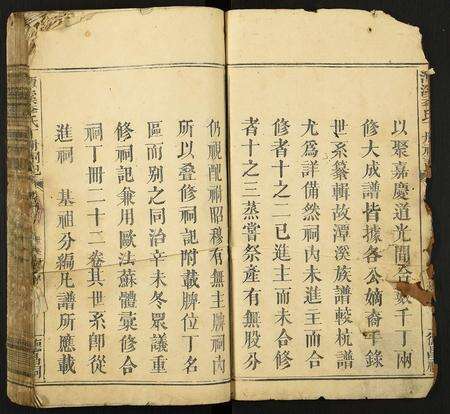 以聚嘉慶道光間合族千丁兩
修大成譜皆據各公嫡裔手錄
世系纂輯故潭溪族譜較杭譜
尤爲詳備然祠內未進主而合
修者十之二已進主而未合修
者十之三蒸嘗祭產有無股分
仍視配祔昭穆有無主牌祠內
所以叠修祠記附載牌位丁名
區而別之同治辛未冬眾議重
修祠記兼用歐法蘇體彙修合
祠丁冊二十二卷其世系卽從
進祠 基祖分編凡譜所應載